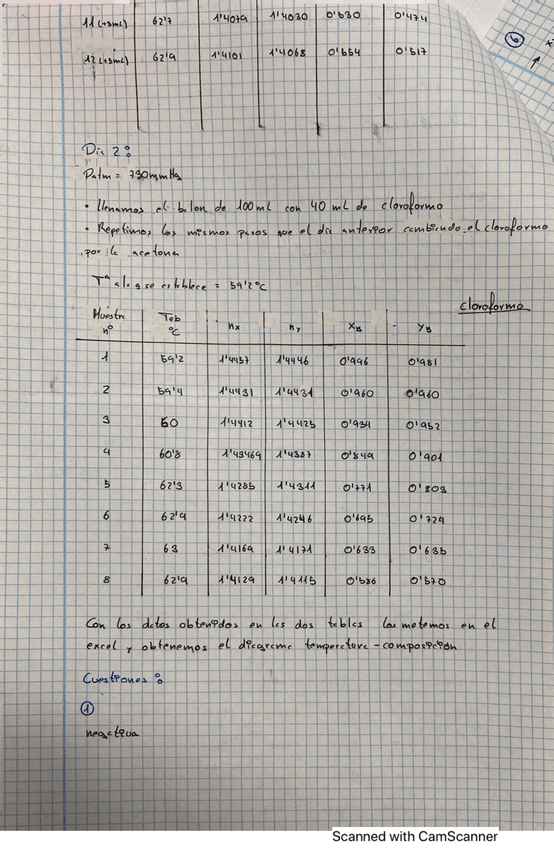 11 (+3mL) 62'7 1'4079 1'4030 0'530 0'474
12 (+3mL) 62'9 1'4101 1'4068 0'554 0'517
6
Día 2:
Patm = 730mmHg
• Llenamos el balon de 100ml con 40 ml de cloroformo
• Repetimos los mismos pasos que el dia anterior cambiando el cloroformo
por la acetona
Tª a la q se establece = 59'2ºC
cloroformo
Muestra nº Teb ºC nx ny XB YB
1 59'2 1'4457 1'4446 0'996 0'981
2 59'4 1'4431 1'4431 0'960 0'960
3 60 1'4412 1'4425 0'934 0'952
4 60'8 1'43469 1'4387 0'849 0'901
5 62'3 1'4285 1'4311 0'771 0'803
6 62'9 1'4222 1'4246 0'695 0'724
7 63 1'4169 1'4171 0'633 0'635
8 62'9 1'4129 1'4115 0'586 0'570
Con los datos obtenidos en las dos tablas los metemos en el
excel y obtenemos el diagrama temperatura-composición
Cuestiones:
1
negativa
Scanned with CamScanner